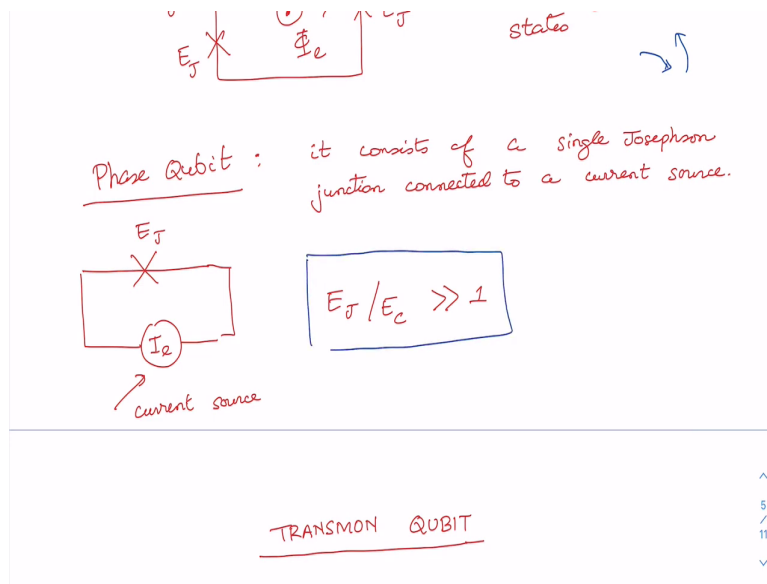 E_J
Φ_e
states
Phase Qubit : it consists of a single Josephson
junction connected to a current source.
E_J
E_J/E_C >> 1
I_e
current source
TRANSMON QUBIT
5
/
11